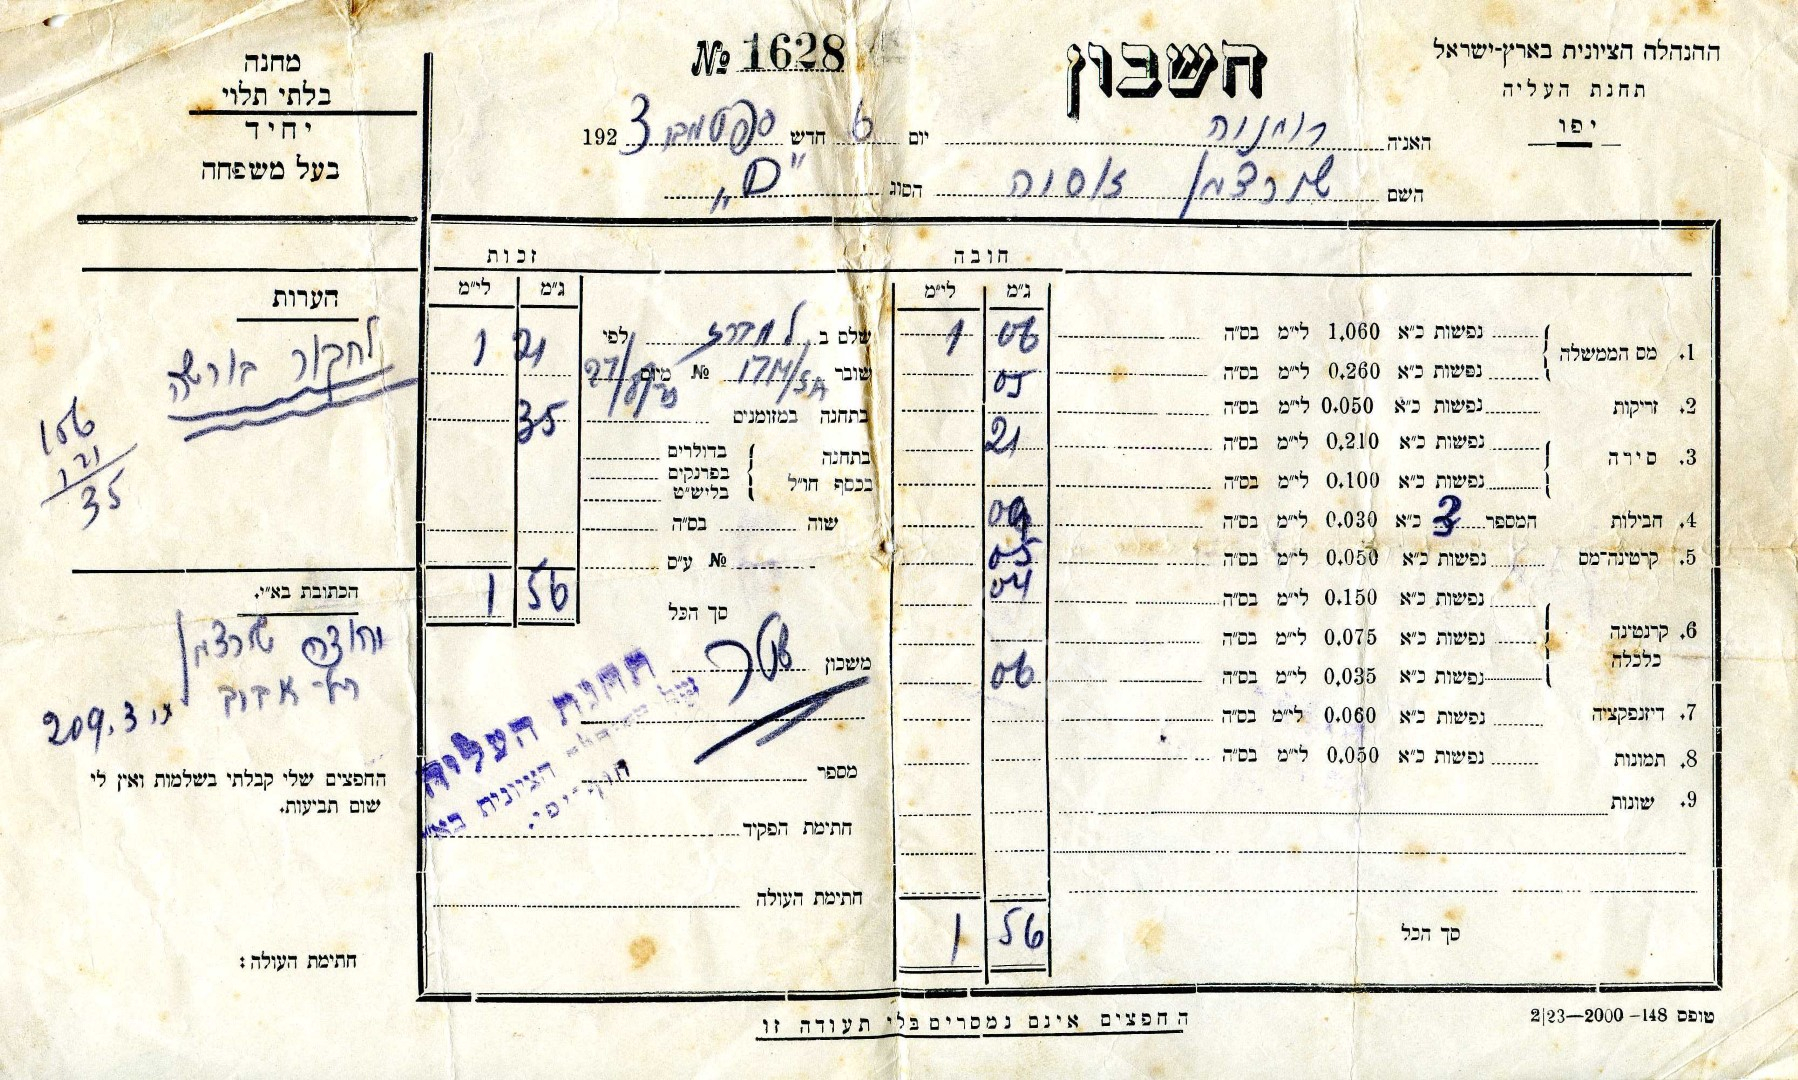 ההנהלה הציונית בארץ-ישראל
תחנת העליה
יפו
חשבון
№ 1628
האניה רומניה יום 6 חדש ספטמבר 1923
השם שורצמן הסוג "ם"
מחנה
בלתי תלוי
יחיד
בעל משפחה
חובה
לי״מ ג״מ
1. מס הממשלה נפשות כ״א 1.060 לי״מ בס״ה 1 06
נפשות כ״א 0.260 לי״מ בס״ה
2. זריקות נפשות כ״א 0.050 לי״מ בס״ה 05
3. סירה נפשות כ״א 0.210 לי״מ בס״ה 21
נפשות כ״א 0.100 לי״מ בס״ה
4. חבילות המספר 3 כ״א 0.030 לי״מ בס״ה 09
5. קרטינה־מס נפשות כ״א 0.050 לי״מ בס״ה 05
6. קרנטינה כלכלה נפשות כ״א 0.150 לי״מ בס״ה 04
נפשות כ״א 0.075 לי״מ בס״ה
נפשות כ״א 0.035 לי״מ בס״ה 06
7. דיזנפקציה נפשות כ״א 0.060 לי״מ בס״ה
8. תמונות נפשות כ״א 0.050 לי״מ בס״ה
9. שונות
סך הכל 1 56
זכות
לי״מ ג״מ
שלם ב לפי 1 21
שובר № מיום
בתחנה במזומנים 35
בתחנה בכסף חו״ל
בדולרים
בפרנקים
בליש״ט
שוה בס״ה
№ ע״ס
סך הכל 1 56
משכון שטר
תחנת העליה
הציונית בא״י
מספר
חתימת הפקיד
חתימת העולה
הערות
בורשה
156
121
35
הכתובת בא״י.
שורצמן
תל אביב
209.3
החפצים שלי קבלתי בשלמות ואין לי
שום תביעות.
חתימת העולה:
החפצים אינם נמסרים בלי תעודה זו
טופס 148– 2000—2|23